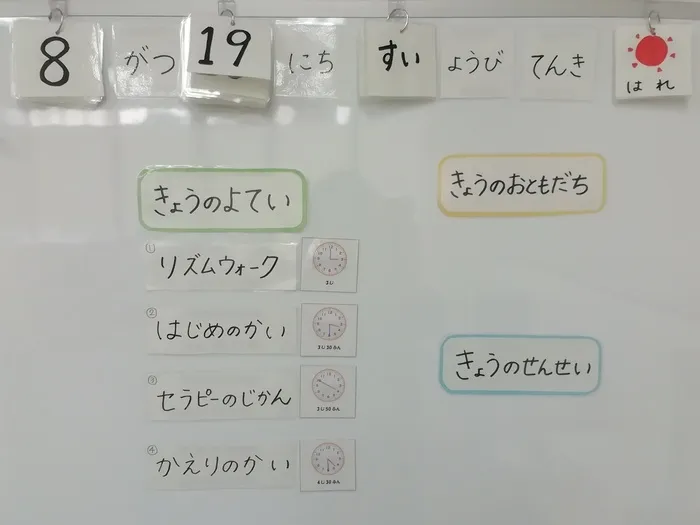 8 がつ 19 にち すい ようび てんき はれ
きょうのよてい
① リズムウォーク 3じ
② はじめのかい 3じ30ぷん
③ セラピーのじかん 3じ50ぷん
④ かえりのかい 4じ30ぷん
きょうのおともだち
きょうのせんせい